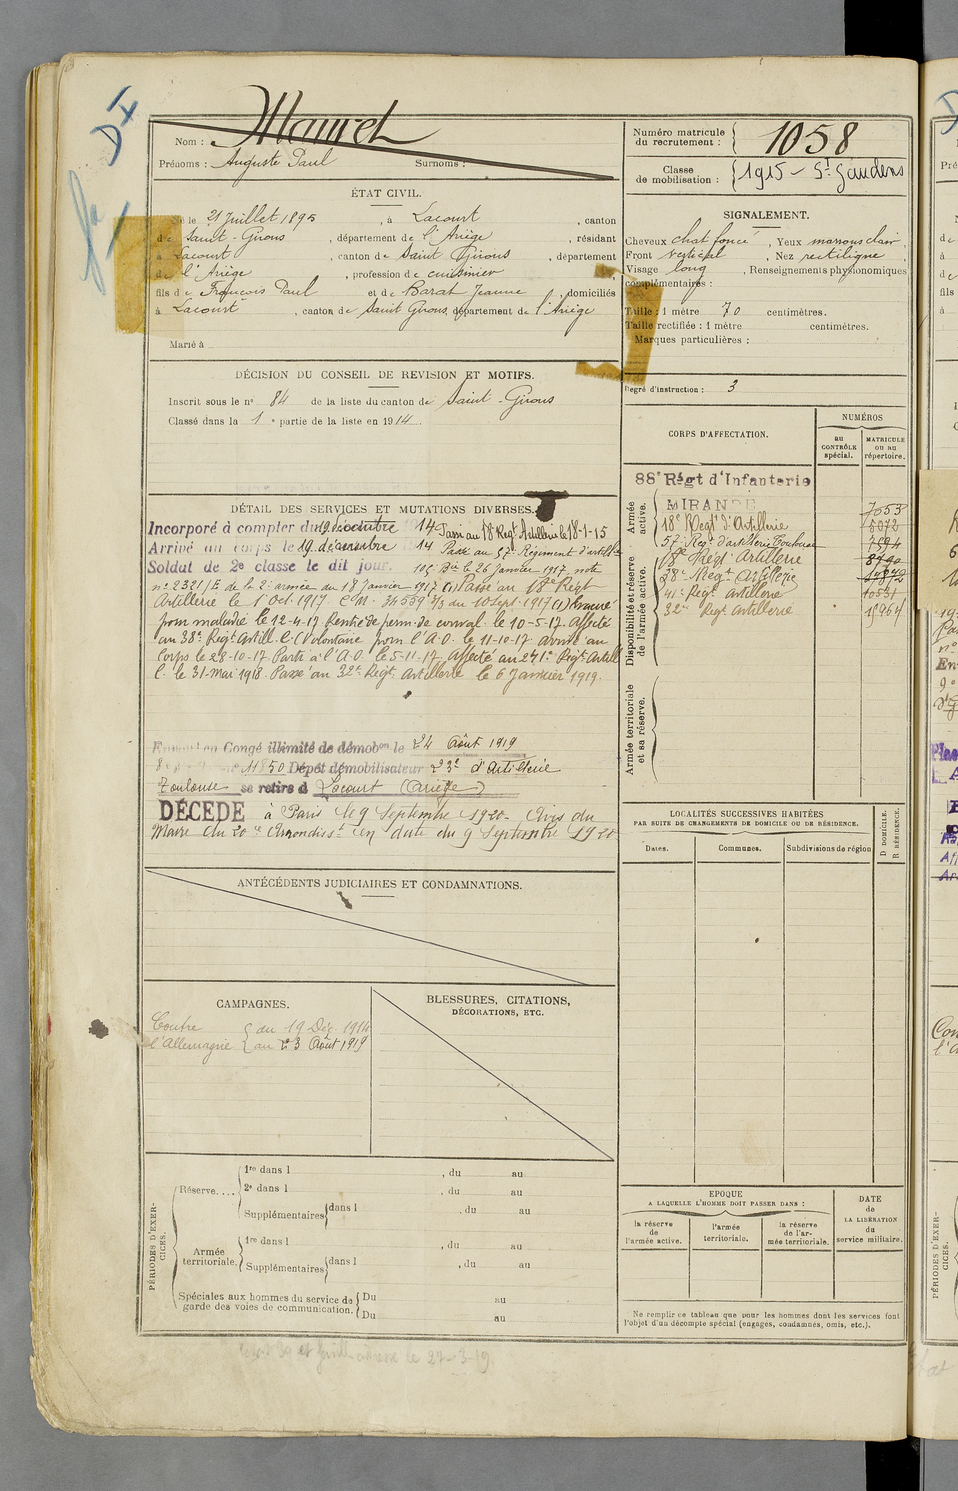 Maurel
Nom :
Prénoms : Auguste Paul Surnoms :
Numéro matricule du recrutement : 1058
Classe de mobilisation : 1915 - St Gaudens
ÉTAT CIVIL.
le 21 Juillet 1895, à Lacourt, canton
de Saint-Girons, département de l'Ariège, résidant
à Lacourt, canton de Saint Girons, département
de l'Ariège, profession de cuisinier
fils de François Paul et de Barat Jeanne, domiciliés
à Lacourt, canton de Saint Girons, département de l'Ariège
Marié à
SIGNALEMENT.
Cheveux chat foncé, Yeux marrons clair,
Front vertical, Nez rectiligne,
Visage long, Renseignements physionomiques
complémentaires :
Taille : 1 mètre 70 centimètres.
Taille rectifiée : 1 mètre centimètres.
Marques particulières :
Degré d'instruction : 3
DÉCISION DU CONSEIL DE REVISION ET MOTIFS.
Inscrit sous le no 84 de la liste du canton de Saint-Girons
Classé dans la 1e partie de la liste en 1914.
CORPS D'AFFECTATION.
NUMÉROS
au CONTRÔLE spécial.
MATRICULE ou au répertoire.
Armée active.
88e Régt d'Infanterie
MIRANDE 7053
18e Régt d'Artillerie 5072
57e Reg. d'artillerie Toulouse
Disponibilité et réserve de l'armée active.
18e Régt Artillerie
38e Régt Artillerie
41e Régt Artillerie 10531
32e Régt Artillerie
Armée territoriale et sa réserve.
DÉTAIL DES SERVICES ET MUTATIONS DIVERSES.
Incorporé à compter du 19 décembre 14 Passé au 18 Regt Artillerie le 18-1-15
Arrivé au corps le 19 décembre 14 Passé au 57e Régiment d'artillie
Soldat de 2e classe le dit jour. 105 Bie le 26 janvier 1917 note
no 2321/E de la 2e armée du 18 janvier 1917 (1) Passé au 18e Regt
Artillerie le 1er Oct. 1917. C.M. 34559 2/3 du 10 Sept. 1917 (1)
pour maladie le 12-4-17 Rentré de perm. de conval. le 10-5-17. Affecté
au 38e Regt Artill. C. Volontaire pour l'A.O. le 11-10-17 arrivé au
Corps le 28-10-17 Parti à l'A.O. le 5-11-17. Affecté au 241e Regt Artill
C. le 31-Mai 1918. Passé au 32e Regt Artillerie le 6 Janvier 1919.
Congé illimité de démobon le 24 Août 1919
11850 Dépôt démobilisateur 23e d'Artillerie
Toulouse se retire à Lacourt (Ariège)
DÉCÉDÉ à Paris le 9 Septembre 1920. Avis du
Maire du 20e Arrondisst en date du 9 Septembre 1920
LOCALITÉS SUCCESSIVES HABITÉES
PAR SUITE DE CHANGEMENTS DE DOMICILE OU DE RÉSIDENCE.
Dates. Communes. Subdivisions de région
D DOMICILE. R RÉSIDENCE.
ANTÉCÉDENTS JUDICIAIRES ET CONDAMNATIONS.
CAMPAGNES.
Contre { du 19 Déc. 1914
l'Allemagne { au 23 Août 1919
BLESSURES, CITATIONS,
DÉCORATIONS, ETC.
PÉRIODES D'EXERCICES.
Réserve....
1re dans l , du au
2e dans l , du au
Supplémentaires {dans l , du au
Armée territoriale.
1re dans l , du au
Supplémentaires {dans l , du au
Spéciales aux hommes du service de {Du au
garde des voies de communication. {Du au
EPOQUE
A LAQUELLE L'HOMME DOIT PASSER DANS :
la réserve de l'armée active.
l'armée territoriale.
la réserve de l'armée territoriale.
DATE de LA LIBÉRATION du service militaire.
Ne remplir ce tableau que pour les hommes dont les services font
l'objet d'un décompte spécial (engagés, condamnés, omis, etc.).